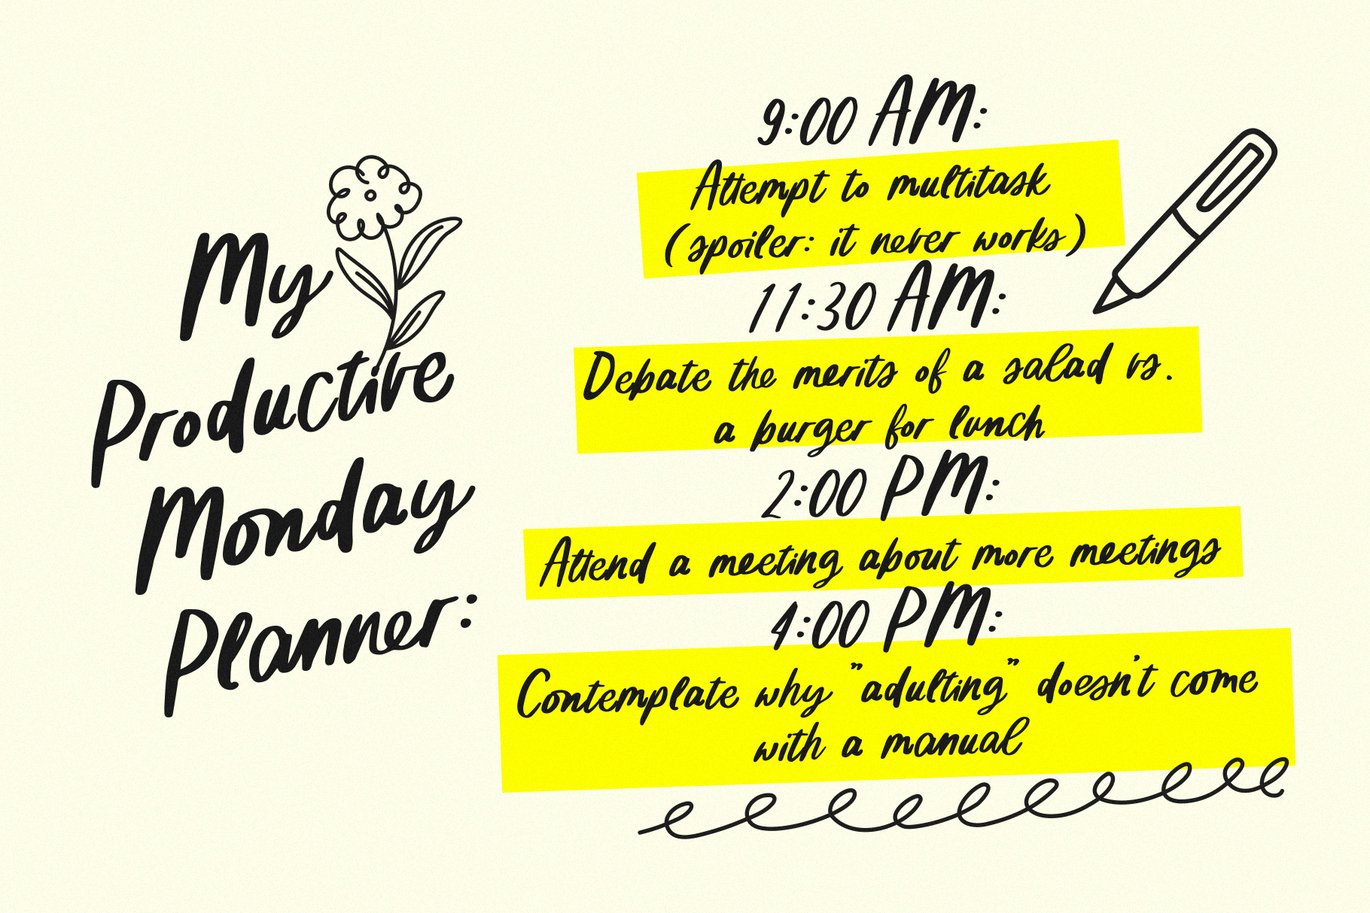 My
Productive
Monday
Planner:
9:00 AM:
Attempt to multitask
(spoiler: it never works)
11:30 AM:
Debate the merits of a salad vs.
a burger for lunch
2:00 PM:
Attend a meeting about more meetings
4:00 PM:
Contemplate why "adulting" doesn't come
with a manual